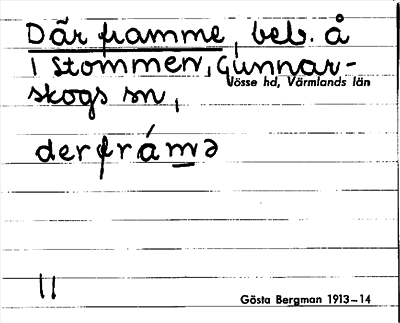 Där framme, beb. å
1 Stommen, Gunnar-
skogs sn,
Jösse hd, Värmlands län
derfrámə
Gösta Bergman 1913–14